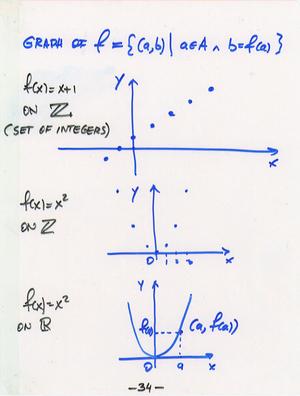 GRAPH OF f = {(a,b) | a∈A ∧ b=f(a)}
f(x)=x+1
ON ℤ
(SET OF INTEGERS)
Y
x
f(x)=x²
ON ℤ
Y
0 1 2 3
x
f(x)=x²
ON ℝ
Y
f(a)
(a, f(a))
0 a x
-34-